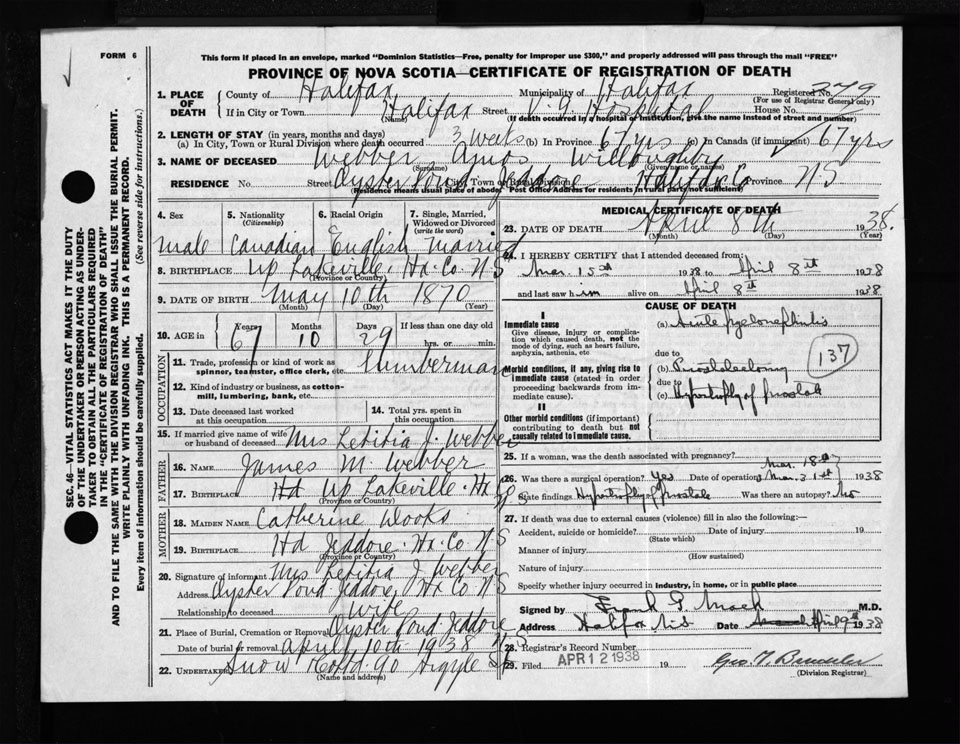 FORM 6
This form if placed in an envelope, marked "Dominion Statistics—Free, penalty for improper use $300," and properly addressed will pass through the mail "FREE"
PROVINCE OF NOVA SCOTIA—CERTIFICATE OF REGISTRATION OF DEATH
1. PLACE OF DEATH
County of Halifax Municipality of Halifax Registered No. 279
(For use of Registrar General only)
If in City or Town Halifax Street V. G. Hospital House No.
(Name) (If death occurred in a hospital or institution, give the name instead of street and number)
2. LENGTH OF STAY (in years, months and days)
(a) In City, Town or Rural Division where death occurred 3 weeks (b) In Province 67 yrs (c) In Canada (if immigrant) 67 yrs
3. NAME OF DECEASED Webber Amos Willoughby
(Surname) (Given name or names)
RESIDENCE No. Street Oyster Pond Jeddore City Town or Rural Division Halifax Co Province N. S
(Residence means usual place of abode. Post Office Address for residents in rural parts not sufficient)
4. Sex
male
5. Nationality (Citizenship)
Canadian
6. Racial Origin
English
7. Single, Married, Widowed or Divorced (write the word)
Married
8. BIRTHPLACE Up Lakeville. Hx. Co. N S
(Province or Country)
9. DATE OF BIRTH May 10th 1870
(Month) (Day) (Year)
10. AGE in Years 67 Months 10 Days 29 If less than one day old hrs. or min.
OCCUPATION
11. Trade, profession or kind of work as spinner, teamster, office clerk, etc. Lumberman
12. Kind of industry or business, as cotton-mill, lumbering, bank, etc.
13. Date deceased last worked at this occupation
14. Total yrs. spent in this occupation
15. If married give name of wife or husband of deceased Mrs Letitia J. Webber
FATHER
16. NAME James M. Webber
17. BIRTHPLACE Hd Up Lakeville. Hx
(Province or Country)
MOTHER
18. MAIDEN NAME Catherine
19. BIRTHPLACE Hd Jeddore. Hx. Co. N S
(Province or Country)
20. Signature of informant Mrs Letitia J. Webber
Address Oyster Pond Jeddore, Hx Co N S
Relationship to deceased wife
21. Place of Burial, Cremation or Removal Oyster Pond Jeddore
Date of burial or removal April 10th 1938 N. S
22. Undertaker Snow & Co Ltd. 90 Argyle St
(Name and address)
MEDICAL CERTIFICATE OF DEATH
23. DATE OF DEATH April 8th 1938.
(Month) (Day) (Year)
24. I HEREBY CERTIFY that I attended deceased from:
Mar. 15th 1938 to April 8th 1938
and last saw him alive on April 8th 1938
CAUSE OF DEATH
I
Immediate cause
Give disease, injury or complication which caused death, not the mode of dying, such as heart failure, asphyxia, asthenia, etc
(a) Acute pyelonephritis
due to
Morbid conditions, if any, giving rise to immediate cause (stated in order proceeding backwards from immediate cause).
(b) Prostatectomy
due to
(c) Hypertrophy of prostate
137
II
Other morbid conditions (if important) contributing to death but not causally related to immediate cause.
25. If a woman, was the death associated with pregnancy?
26. Was there a surgical operation? Yes Date of operation Mar. 18th Mar. 31st 1938
State findings Hypertrophy of prostate Was there an autopsy? No
27. If death was due to external causes (violence) fill in also the following:—
Accident, suicide or homicide? Date of injury 19
(State which)
Manner of injury
(How sustained)
Nature of injury
Specify whether injury occurred in industry, in home, or in public place
Signed by Frank G. Mack M.D.
Address Halifax N.S. Date April 9th 1938
28. Registrar's Record Number
29. Filed APR 12 1938 19
(Division Registrar)
SEC. 46—VITAL STATISTICS ACT MAKES IT THE DUTY OF THE UNDERTAKER OR PERSON ACTING AS UNDERTAKER TO OBTAIN ALL THE PARTICULARS REQUIRED IN THE "CERTIFICATE OF REGISTRATION OF DEATH" AND TO FILE THE SAME WITH THE DIVISION REGISTRAR WHO SHALL ISSUE THE BURIAL PERMIT.
WRITE PLAINLY WITH UNFADING INK. THIS IS A PERMANENT RECORD.
Every item of information should be carefully supplied. (See reverse side for instructions.)